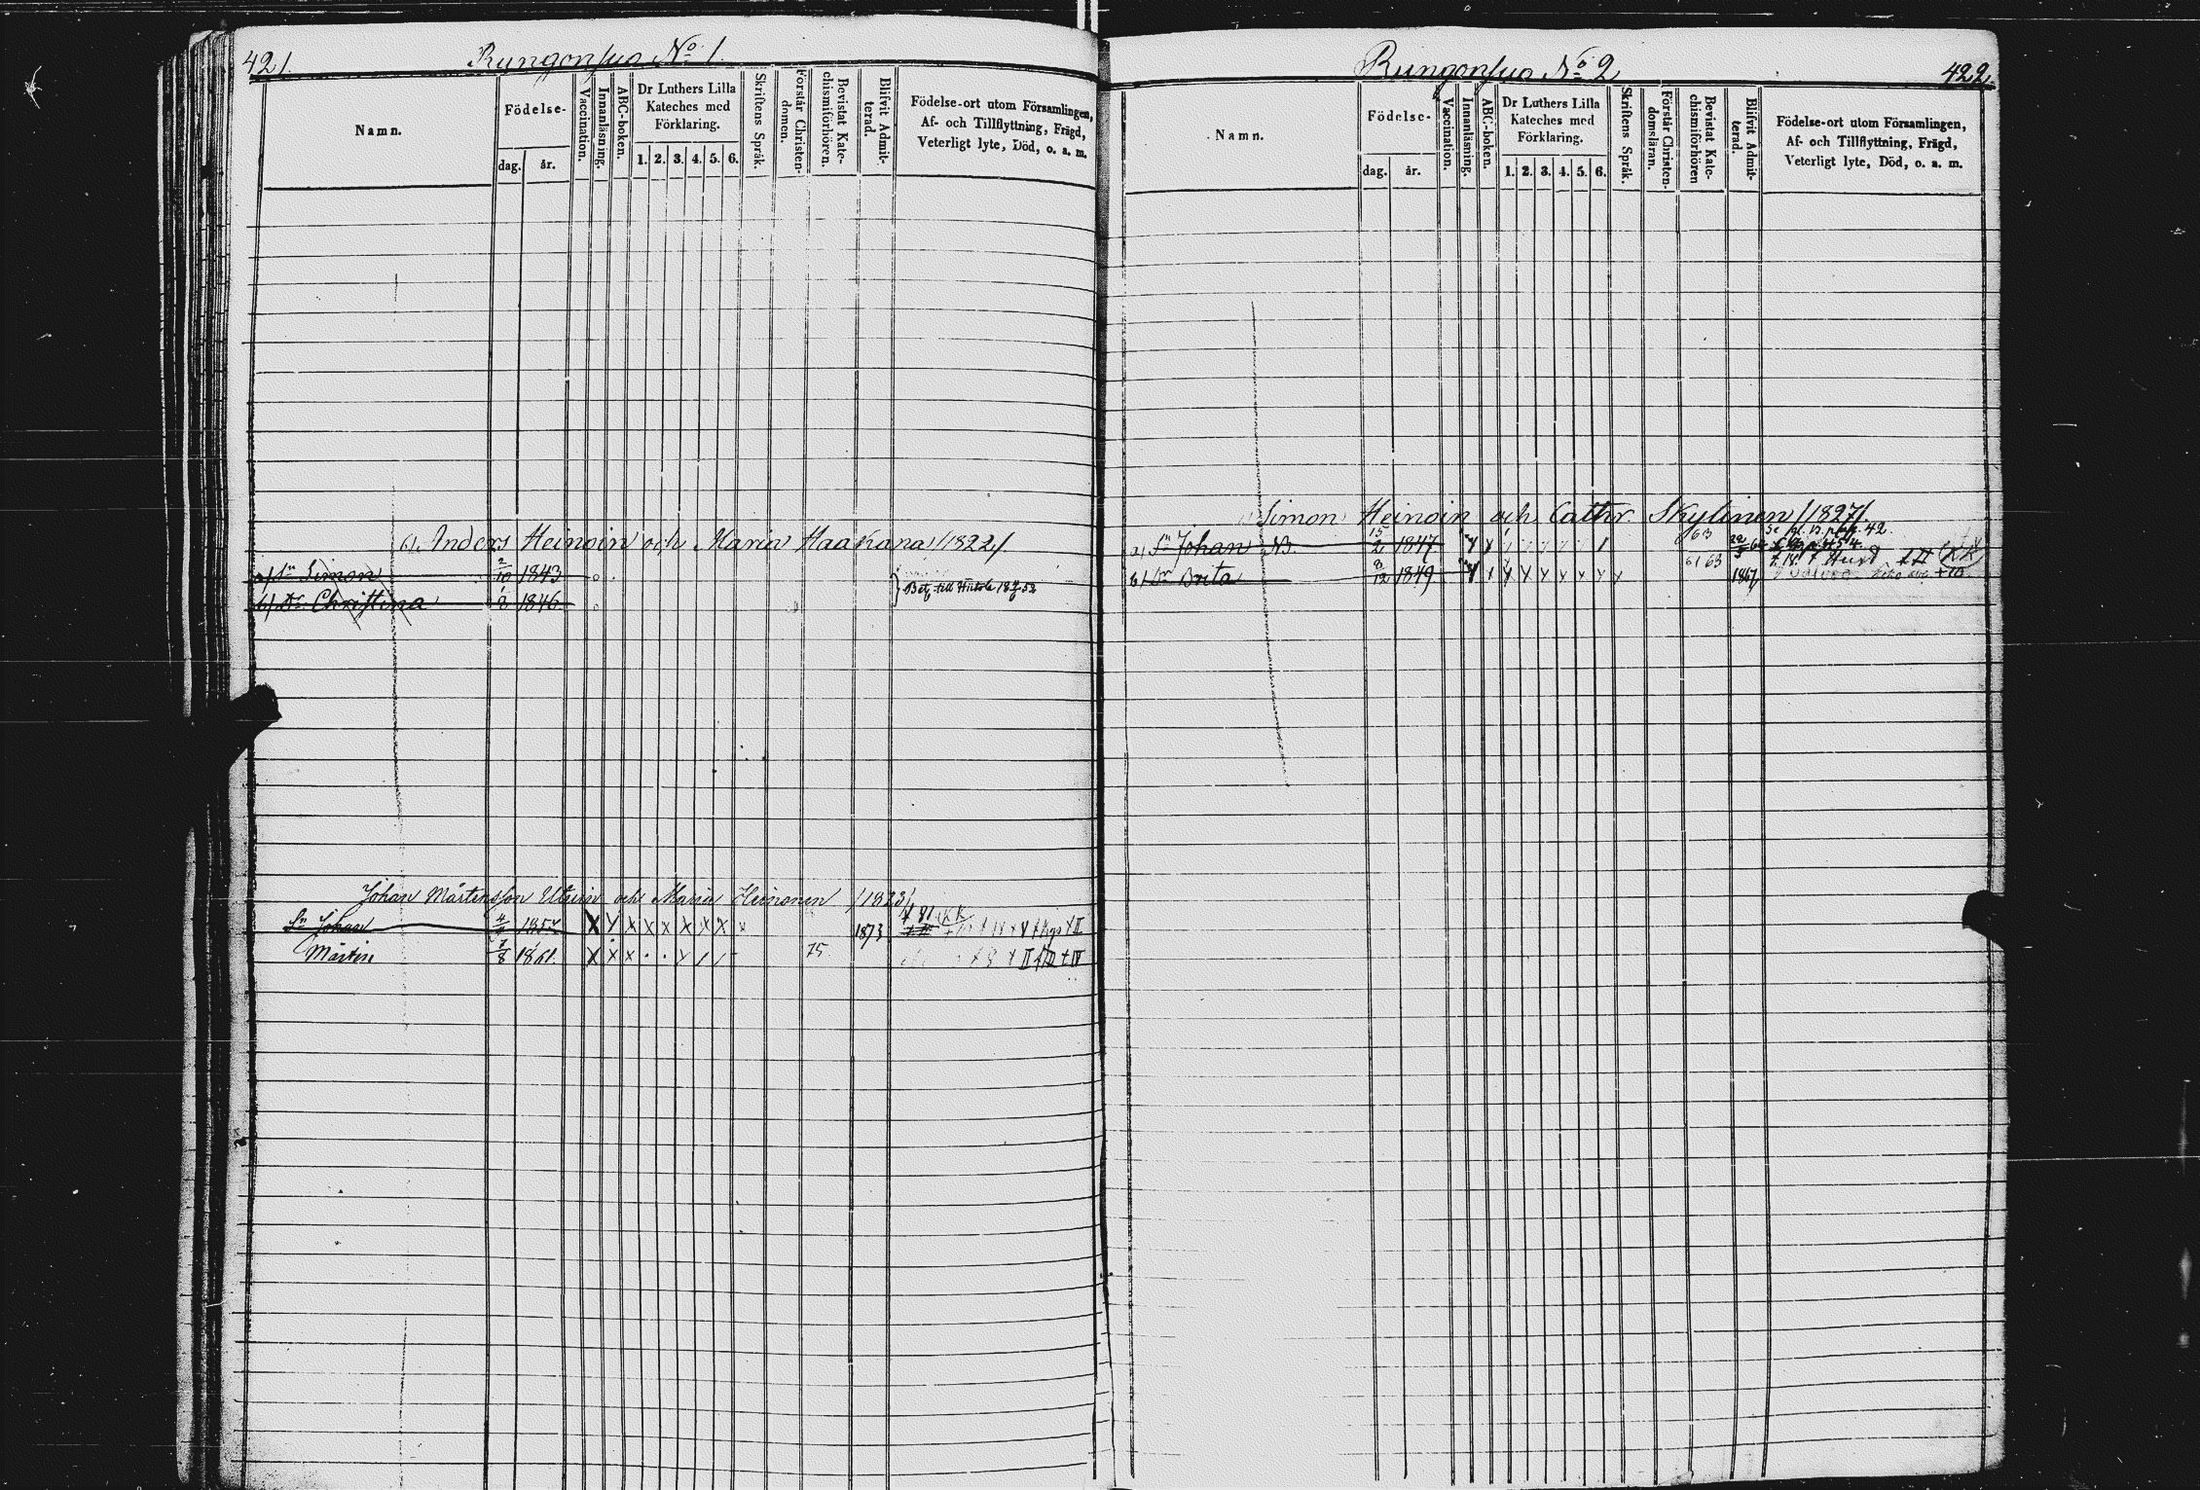 421.
Rungonsuo No 1.
Namn.
Födelse-
dag.
år.
Vaccination.
Innanläsning.
ABC-boken.
Dr Luthers Lilla
Kateches med
Förklaring.
1. 2. 3. 4. 5. 6.
Skriftens Språk.
Förstår Christen-
domen.
Bevistat Kate-
chismiförhören.
Blifvit Admit-
terad.
Födelse-ort utom Församlingen,
Af- och Tillflyttning, Frägd,
Veterligt lyte, Död, o. a. m.
Anders Heinoin och Maria Haakana /1822/
a) Sn Simon 2/10 1843
b) Dr Christina 1/8 1846
Bet. till Hiitola 18 52
Johan Mårtensson och Maria Heinonen /1823/
Sn Johan 185 X Y X X X X X X X 1873
Mårten 8 1861. X X X 75 II III IV
422
Rungonsuo No 2
Namn.
Födelse-
dag.
år.
Vaccination.
Innanläsning.
ABC-boken.
Dr Luthers Lilla
Kateches med
Förklaring.
1. 2. 3. 4. 5. 6.
Skriftens Språk.
Förstår Christen-
domsläran.
Bevistat Kate-
chismiförhören
Blifvit Admit-
terad.
Födelse-ort utom Församlingen,
Af- och Tillflyttning, Frägd,
Veterligt lyte, Död, o. a. m.
Simon Heinoin och Cathr. Skylinen /1827/
a) Sn Johan 15/2 1847 63 42.
b) Dr Brita 8/12 1849 61 63 1867